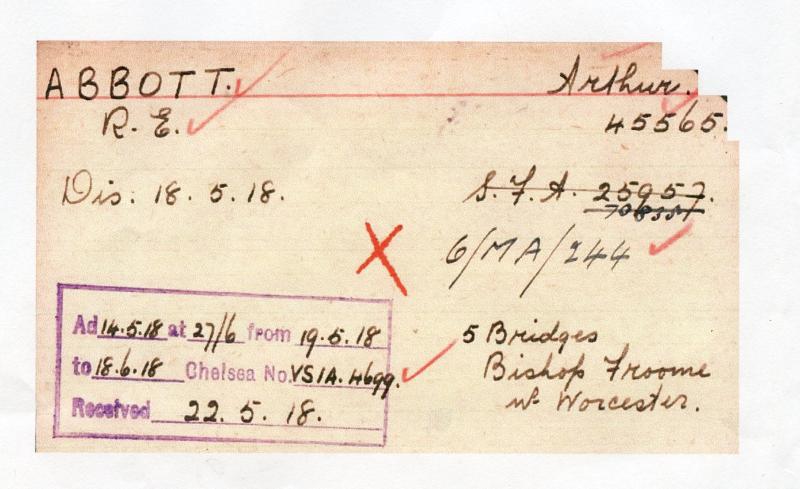 ABBOTT. Arthur.
R. E. 45565.
Dis: 18. 5. 18. S.F.A. 25957.
6/MA/244
Ad 14.5.18 at 27/6 from 19.5.18
to 18.6.18 Chelsea No. VSIA.4699.
Received 22. 5. 18.
5 Bridges
Bishop Froome
nr Worcester.